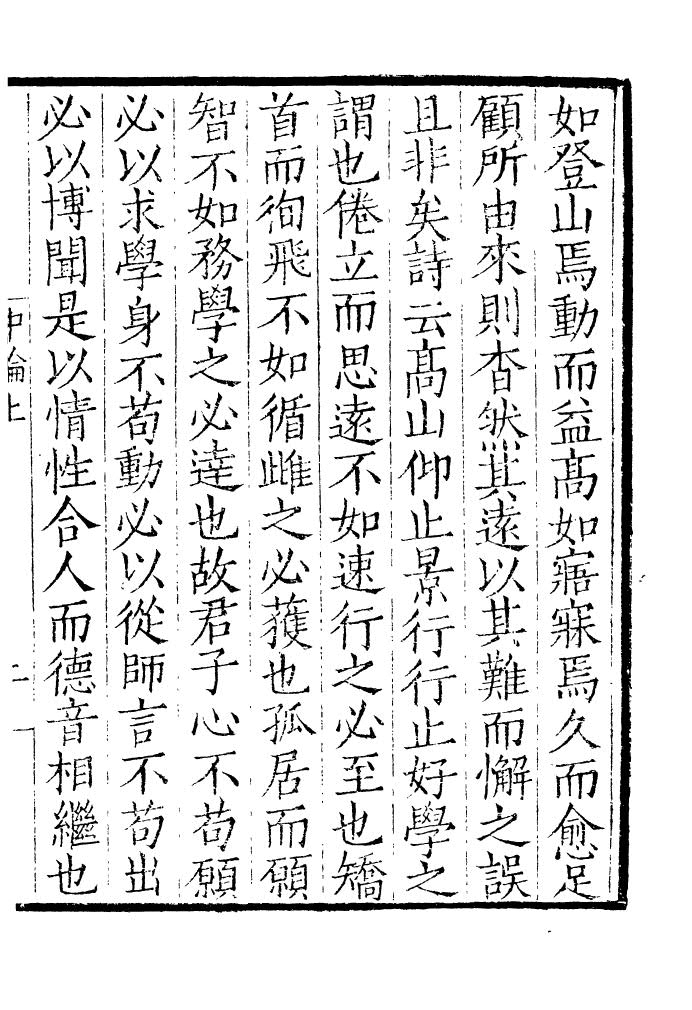 如登山焉動而益髙如寤寐焉久而愈足
顧所由來則杳然其遠以其難而懈之誤
且非矣詩云髙山仰止景行行止好學之
謂也倦立而思逺不如速行之必至也矯
首而徇飛不如循雌之必獲也孤居而願
智不如務學之必達也故君子心不苟願
必以求學身不苟動必以從師言不苟出
必以博聞是以情性合人而德音相繼也
中論上
二